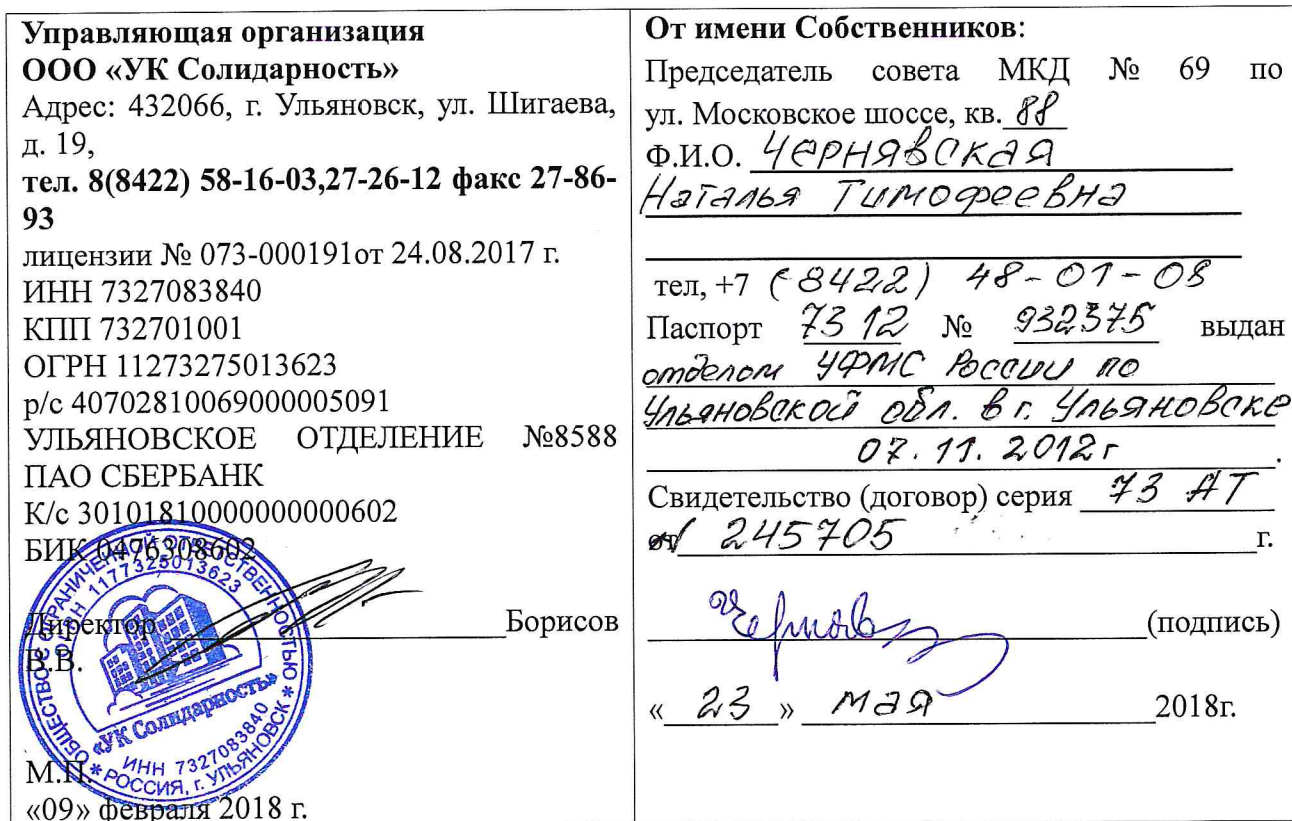 Управляющая организация
ООО «УК Солидарность»
Адрес: 432066, г. Ульяновск, ул. Шигаева,
д. 19,
тел. 8(8422) 58-16-03,27-26-12 факс 27-86-
93
лицензии № 073-000191от 24.08.2017 г.
ИНН 7327083840
КПП 732701001
ОГРН 11273275013623
р/с 40702810069000005091
УЛЬЯНОВСКОЕ ОТДЕЛЕНИЕ №8588
ПАО СБЕРБАНК
К/с 30101810000000000602
БИК 0476308602
Директор Борисов
В.В.
М.П.
«09» февраля 2018 г.
ОБЩЕСТВО С ОГРАНИЧЕННОЙ ОТВЕТСТВЕННОСТЬЮ
ОГРН 1177325013623
«УК Солидарность»
ИНН 7327083840
* РОССИЯ, г. УЛЬЯНОВСК *
От имени Собственников:
Председатель совета МКД № 69 по
ул. Московское шоссе, кв. 88
Ф.И.О. Чернявская
Наталья Тимофеевна
тел, +7 (8422) 48-01-08
Паспорт 73 12 № 932375 выдан
отделом УФМС России по
Ульяновской обл. в г. Ульяновске
07.11.2012г.
Свидетельство (договор) серия 73 АТ
от 245705 г.
(подпись)
« 23 » мая 2018г.